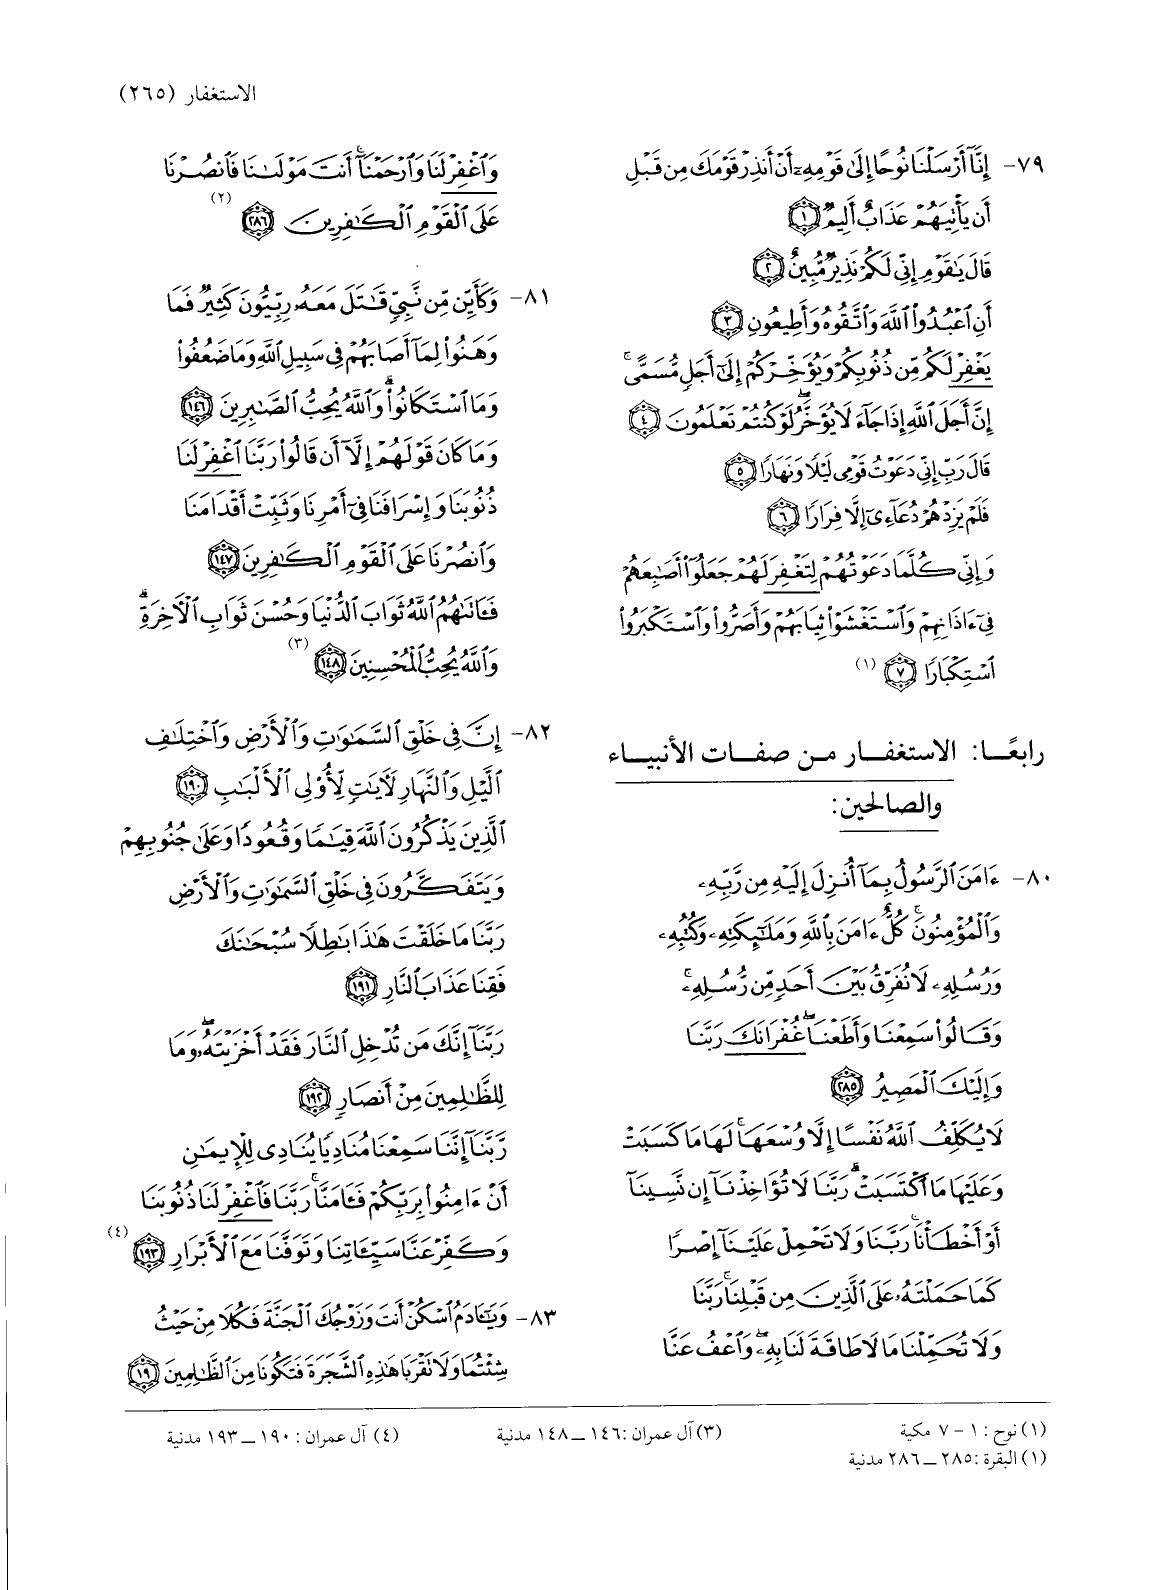 الاستغفار (٢٦٥)
٧٩- إِنَّآ أَرْسَلْنَا نُوحًا إِلَىٰ قَوْمِهِۦٓ أَنْ أَنذِرْ قَوْمَكَ مِن قَبْلِ
أَن يَأْتِيَهُمْ عَذَابٌ أَلِيمٌ ﴿١﴾
قَالَ يَٰقَوْمِ إِنِّى لَكُمْ نَذِيرٌ مُّبِينٌ ﴿٢﴾
أَنِ ٱعْبُدُوا۟ ٱللَّهَ وَٱتَّقُوهُ وَأَطِيعُونِ ﴿٣﴾
يَغْفِرْ لَكُم مِّن ذُنُوبِكُمْ وَيُؤَخِّرْكُمْ إِلَىٰٓ أَجَلٍ مُّسَمًّى ۚ
إِنَّ أَجَلَ ٱللَّهِ إِذَا جَآءَ لَا يُؤَخَّرُ ۖ لَوْ كُنتُمْ تَعْلَمُونَ ﴿٤﴾
قَالَ رَبِّ إِنِّى دَعَوْتُ قَوْمِى لَيْلًا وَنَهَارًا ﴿٥﴾
فَلَمْ يَزِدْهُمْ دُعَآءِىٓ إِلَّا فِرَارًا ﴿٦﴾
وَإِنِّى كُلَّمَا دَعَوْتُهُمْ لِتَغْفِرَ لَهُمْ جَعَلُوٓا۟ أَصَٰبِعَهُمْ
فِىٓ ءَاذَانِهِمْ وَٱسْتَغْشَوْا۟ ثِيَابَهُمْ وَأَصَرُّوا۟ وَٱسْتَكْبَرُوا۟
ٱسْتِكْبَارًا ﴿٧﴾ (١)
رابعًا: الاستغفار من صفات الأنبياء
والصالحين:
٨٠- ءَامَنَ ٱلرَّسُولُ بِمَآ أُنزِلَ إِلَيْهِ مِن رَّبِّهِۦ
وَٱلْمُؤْمِنُونَ ۚ كُلٌّ ءَامَنَ بِٱللَّهِ وَمَلَٰٓئِكَتِهِۦ وَكُتُبِهِۦ
وَرُسُلِهِۦ لَا نُفَرِّقُ بَيْنَ أَحَدٍ مِّن رُّسُلِهِۦ ۚ
وَقَالُوا۟ سَمِعْنَا وَأَطَعْنَا ۖ غُفْرَانَكَ رَبَّنَا
وَإِلَيْكَ ٱلْمَصِيرُ ﴿٢٨٥﴾
لَا يُكَلِّفُ ٱللَّهُ نَفْسًا إِلَّا وُسْعَهَا ۚ لَهَا مَا كَسَبَتْ
وَعَلَيْهَا مَا ٱكْتَسَبَتْ ۗ رَبَّنَا لَا تُؤَاخِذْنَآ إِن نَّسِينَآ
أَوْ أَخْطَأْنَا ۚ رَبَّنَا وَلَا تَحْمِلْ عَلَيْنَآ إِصْرًا
كَمَا حَمَلْتَهُۥ عَلَى ٱلَّذِينَ مِن قَبْلِنَا ۚ رَبَّنَا
وَلَا تُحَمِّلْنَا مَا لَا طَاقَةَ لَنَا بِهِۦ ۖ وَٱعْفُ عَنَّا
وَٱغْفِرْ لَنَا وَٱرْحَمْنَآ ۚ أَنتَ مَوْلَىٰنَا فَٱنصُرْنَا
عَلَى ٱلْقَوْمِ ٱلْكَٰفِرِينَ ﴿٢٨٦﴾ (٢)
٨١- وَكَأَيِّن مِّن نَّبِىٍّ قَٰتَلَ مَعَهُۥ رِبِّيُّونَ كَثِيرٌ فَمَا
وَهَنُوا۟ لِمَآ أَصَابَهُمْ فِى سَبِيلِ ٱللَّهِ وَمَا ضَعُفُوا۟
وَمَا ٱسْتَكَانُوا۟ ۗ وَٱللَّهُ يُحِبُّ ٱلصَّٰبِرِينَ ﴿١٤٦﴾
وَمَا كَانَ قَوْلَهُمْ إِلَّآ أَن قَالُوا۟ رَبَّنَا ٱغْفِرْ لَنَا
ذُنُوبَنَا وَإِسْرَافَنَا فِىٓ أَمْرِنَا وَثَبِّتْ أَقْدَامَنَا
وَٱنصُرْنَا عَلَى ٱلْقَوْمِ ٱلْكَٰفِرِينَ ﴿١٤٧﴾
فَـَٔاتَىٰهُمُ ٱللَّهُ ثَوَابَ ٱلدُّنْيَا وَحُسْنَ ثَوَابِ ٱلْءَاخِرَةِ ۗ
وَٱللَّهُ يُحِبُّ ٱلْمُحْسِنِينَ ﴿١٤٨﴾ (٣)
٨٢- إِنَّ فِى خَلْقِ ٱلسَّمَٰوَٰتِ وَٱلْأَرْضِ وَٱخْتِلَٰفِ
ٱلَّيْلِ وَٱلنَّهَارِ لَءَايَٰتٍ لِّأُو۟لِى ٱلْأَلْبَٰبِ ﴿١٩٠﴾
ٱلَّذِينَ يَذْكُرُونَ ٱللَّهَ قِيَٰمًا وَقُعُودًا وَعَلَىٰ جُنُوبِهِمْ
وَيَتَفَكَّرُونَ فِى خَلْقِ ٱلسَّمَٰوَٰتِ وَٱلْأَرْضِ
رَبَّنَا مَا خَلَقْتَ هَٰذَا بَٰطِلًا سُبْحَٰنَكَ
فَقِنَا عَذَابَ ٱلنَّارِ ﴿١٩١﴾
رَبَّنَآ إِنَّكَ مَن تُدْخِلِ ٱلنَّارَ فَقَدْ أَخْزَيْتَهُۥ ۖ وَمَا
لِلظَّٰلِمِينَ مِنْ أَنصَارٍ ﴿١٩٢﴾
رَّبَّنَآ إِنَّنَا سَمِعْنَا مُنَادِيًا يُنَادِى لِلْإِيمَٰنِ
أَنْ ءَامِنُوا۟ بِرَبِّكُمْ فَـَٔامَنَّا ۚ رَبَّنَا فَٱغْفِرْ لَنَا ذُنُوبَنَا
وَكَفِّرْ عَنَّا سَيِّـَٔاتِنَا وَتَوَفَّنَا مَعَ ٱلْأَبْرَارِ ﴿١٩٣﴾ (٤)
٨٣- وَيَٰٓـَٔادَمُ ٱسْكُنْ أَنتَ وَزَوْجُكَ ٱلْجَنَّةَ فَكُلَا مِنْ حَيْثُ
شِئْتُمَا وَلَا تَقْرَبَا هَٰذِهِ ٱلشَّجَرَةَ فَتَكُونَا مِنَ ٱلظَّٰلِمِينَ ﴿١٩﴾
(١) نوح: ١ - ٧ مكية
(١) البقرة: ٢٨٥ ــ ٢٨٦ مدنية
(٣) آل عمران: ١٤٦ ــ ١٤٨ مدنية
(٤) آل عمران: ١٩٠ ــ ١٩٣ مدنية